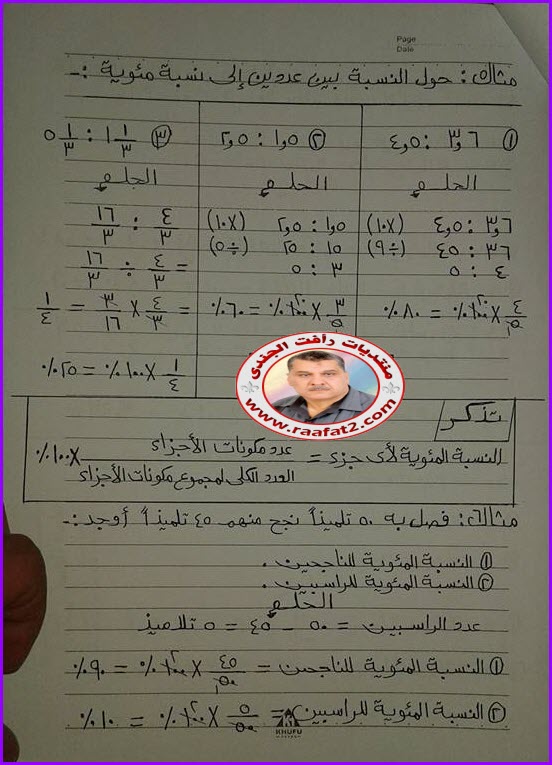 Page
Date
مثال٥: حول النسبة بين عددين إلى نسبة مئوية :-
① ٣٫٦ : ٤٫٥
الحل
٣٫٦ : ٤٫٥ (×١٠)
٣٦ : ٤٥ (÷٩)
٤ : ٥
٤/٥ × ١٠٠٪ = ٨٠٪
② ١٫٥ : ٢٫٥
الحل
١٫٥ : ٢٫٥ (×١٠)
١٥ : ٢٥ (÷٥)
٣ : ٥
٣/٥ × ١٠٠٪ = ٦٠٪
③ ١ ١/٣ : ٥ ١/٣
الحل
٤/٣ : ١٦/٣
= ٤/٣ ÷ ١٦/٣
= ٤/٣ × ٣/١٦ = ١/٤
١/٤ × ١٠٠٪ = ٢٥٪
منتديات رأفت الجندى
www.raafat2.com
تذكر
النسبة المئوية لأى جزء = عدد مكونات الأجزاء / العدد الكلى لمجموع مكونات الأجزاء × ١٠٠٪
مثال٦: فصل به ٥٠ تلميذاً نجح منهم ٤٥ تلميذاً أوجد:-
① النسبة المئوية للناجحين .
② النسبة المئوية للراسبين .
الحل
عدد الراسبين = ٥٠ - ٤٥ = ٥ تلاميذ
① النسبة المئوية للناجحين = ٤٥/٥٠ × ١٠٠٪ = ٩٠٪
② النسبة المئوية للراسبين = ٥/٥٠ × ١٠٠٪ = ١٠٪
KHUFU